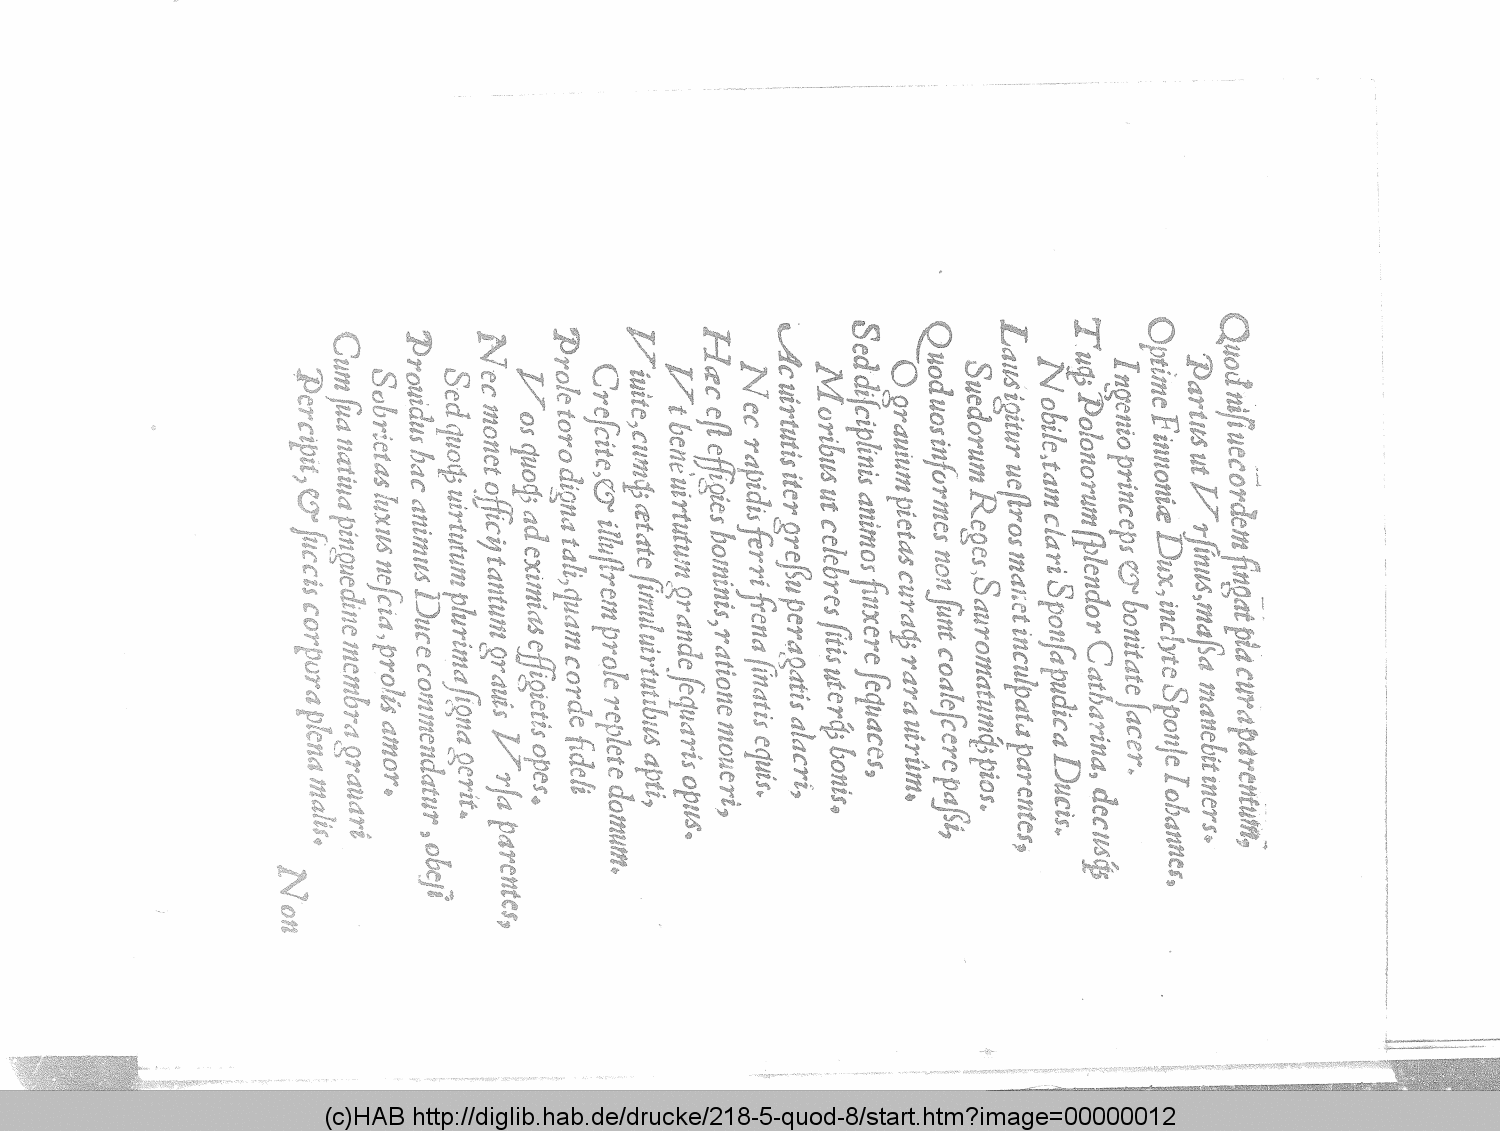 Quod niſi uee cordem fingat pia cura parentum,
Partus ut Vrſinus, maſſa manebit iners.
Optime Finnoniæ Dux, inclyte Sponſe Iohannes,
Ingenio princeps & bonitate ſacer.
Tuq́; Polonorum ſplendor Catharina, decusq́;
Nobile, tam clari Sponſa pudica Ducis.
Laus igitur ueſtros manet inculpata parentes,
Suedorum Reges, Sauromatumq́; pios.
Quod uos informes non ſunt coaleſcere paſſi,
O grauium pietas curaq́; rara uirûm.
Sed diſciplinis animos finxere ſequaces,
Moribus ut celebres ſitis uterq́; bonis.
Ac uirtutis iter greſſu peragatis alacri,
Nec rapidis ferri frena ſinatis equis.
Hæc eſt effigies hominis, ratione moueri,
Vt bene uirtutum grande ſequaris opus.
Viuite, cumq́; ætate ſimul uirtutibus apti,
Creſcite, & illuſtrem prole replete domum.
Prole toro digna tali, quam corde fideli
Vos quoq́; ad eximias effigietis opes.
Nec monet officij tantum grauis Vrſa parentes,
Sed quoq́; uirtutum plurima ſigna gerit.
Prouidus hac animus Duce commendatur, obeſi
Sobrietas luxus neſcia, prolis amor.
Cum ſua natiua pinguedine membra grauari
Percipit, & ſuccis corpora plena malis.
Non
(c)HAB http://diglib.hab.de/drucke/218-5-quod-8/start.htm?image=00000012